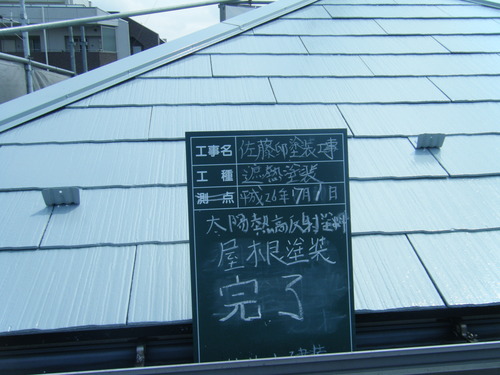 工事名 佐藤邸塗装工事
工種 遮熱塗装
測点 平成26年7月1日
太陽熱高反射塗料
屋根塗装
完了